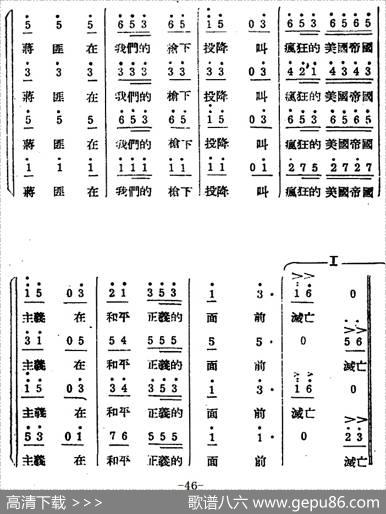 5 5 5 6 5 3 6 5 1 5 0 3 6 5 3 6 5 6 5
蔣 匪 在 我們的 槍下 投降 叫 瘋狂的 美國帝國
3 3 3 3 3 3 3 3 3 3 0 3 4 2 1 4 3 4 3
蔣 匪 在 我們的 槍下 投降 叫 瘋狂的 美國帝國
5 5 5 6 5 3 6 5 1 5 0 3 6 5 3 6 5 6 5
蔣 匪 在 我們的 槍下 投降 叫 瘋狂的 美國帝國
1 1 1 1 1 1 1 1 1 1 0 1 2 7 5 2 7 2 7
蔣 匪 在 我們的 槍下 投降 叫 瘋狂的 美國帝國
I
1 5 0 3 2 1 3 5 3 1 3 · 1 6 0
主義 在 和平 正義的 面 前 滅亡
3 1 0 5 5 4 5 5 5 5 5 · 0 5 6
主義 在 和平 正義的 面 前 滅亡
1 5 0 3 3 4 3 5 3 1 3 · 1 6 0
主義 在 和平 正義的 面 前 滅亡
5 3 0 1 7 6 5 5 5 1 1 · 0 2 3
主義 在 和平 正義的 面 前 滅亡
-46-
高清下载 >>> 歌谱八六 www.gepu86.com